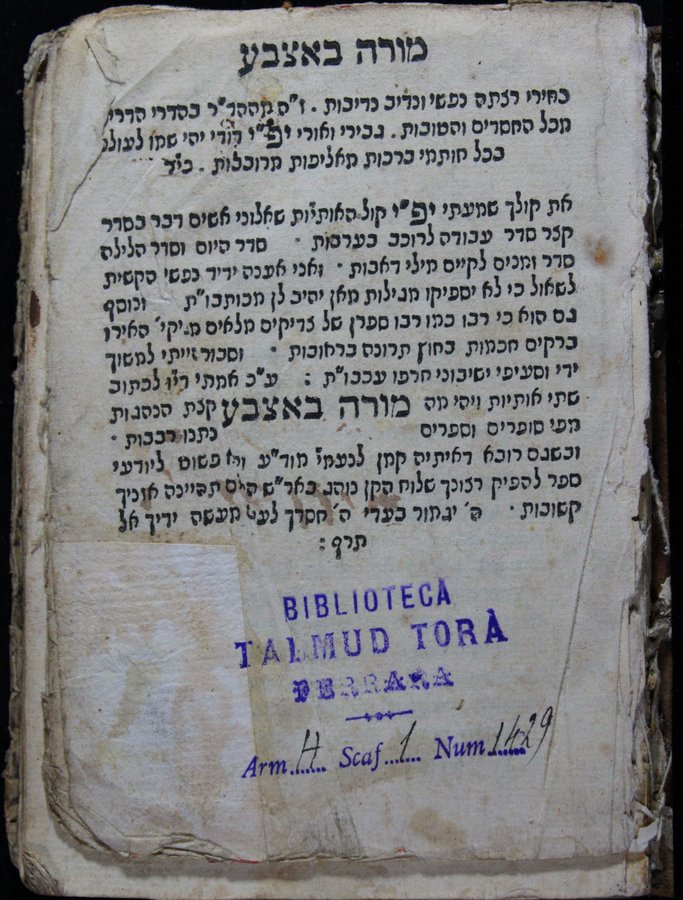 מורה באצבע
בחירי רצתה נפשי ונדיב נדיבות . ז"ה מההר"ר בהדרי הדרי
מכל החסדים והטובות . גבירי ואורי יפ"י דודי יהי שמו לעולם
בכל חותמי ברכות מאליפות מרובבות . כי"ר
את קולך שמעתי יפ"י קול האותיות שאלוני אשים דבר בסדר
קצר סדר עבודה לרוכב בערבות . סדר היום וסדר הלילה
סדר זמנים לקיים מילי דאבות . ואני אענה ידיד נפשי הקשית
לשאול כי לא יספיקו מגילות מאן יהיב לן מכותבו"ת ונוסף
גם הוא כי רבו כמו רבו ספרן של צדיקים מלאים מזיקי' האירו
ברקים חכמות בחוץ תרונה ברחובות .
ידי וסעיפי ישיבוני חרפו עכבו"ת : ע"כ אמתי לכתוב
שתי אותיות ויהי מה מורה באצבע קצת הנהגות
מפי סופרים וספרים כתנו רבבות .
ובשגם רובא דאיתיה קמן לנעמ"י מוד"ע פשוט ליודעי
ספר להפיק רצונך שלוח הקן נוהג באר"ש תהיינה אזניך
קשובות . ה' יגמור בעדי ה' חסדך מעשה ידיך אל
תרף :
BIBLIOTECA
TALMUD TORÀ
FERRARA
Arm. H Scaf. 1 Num. 1429